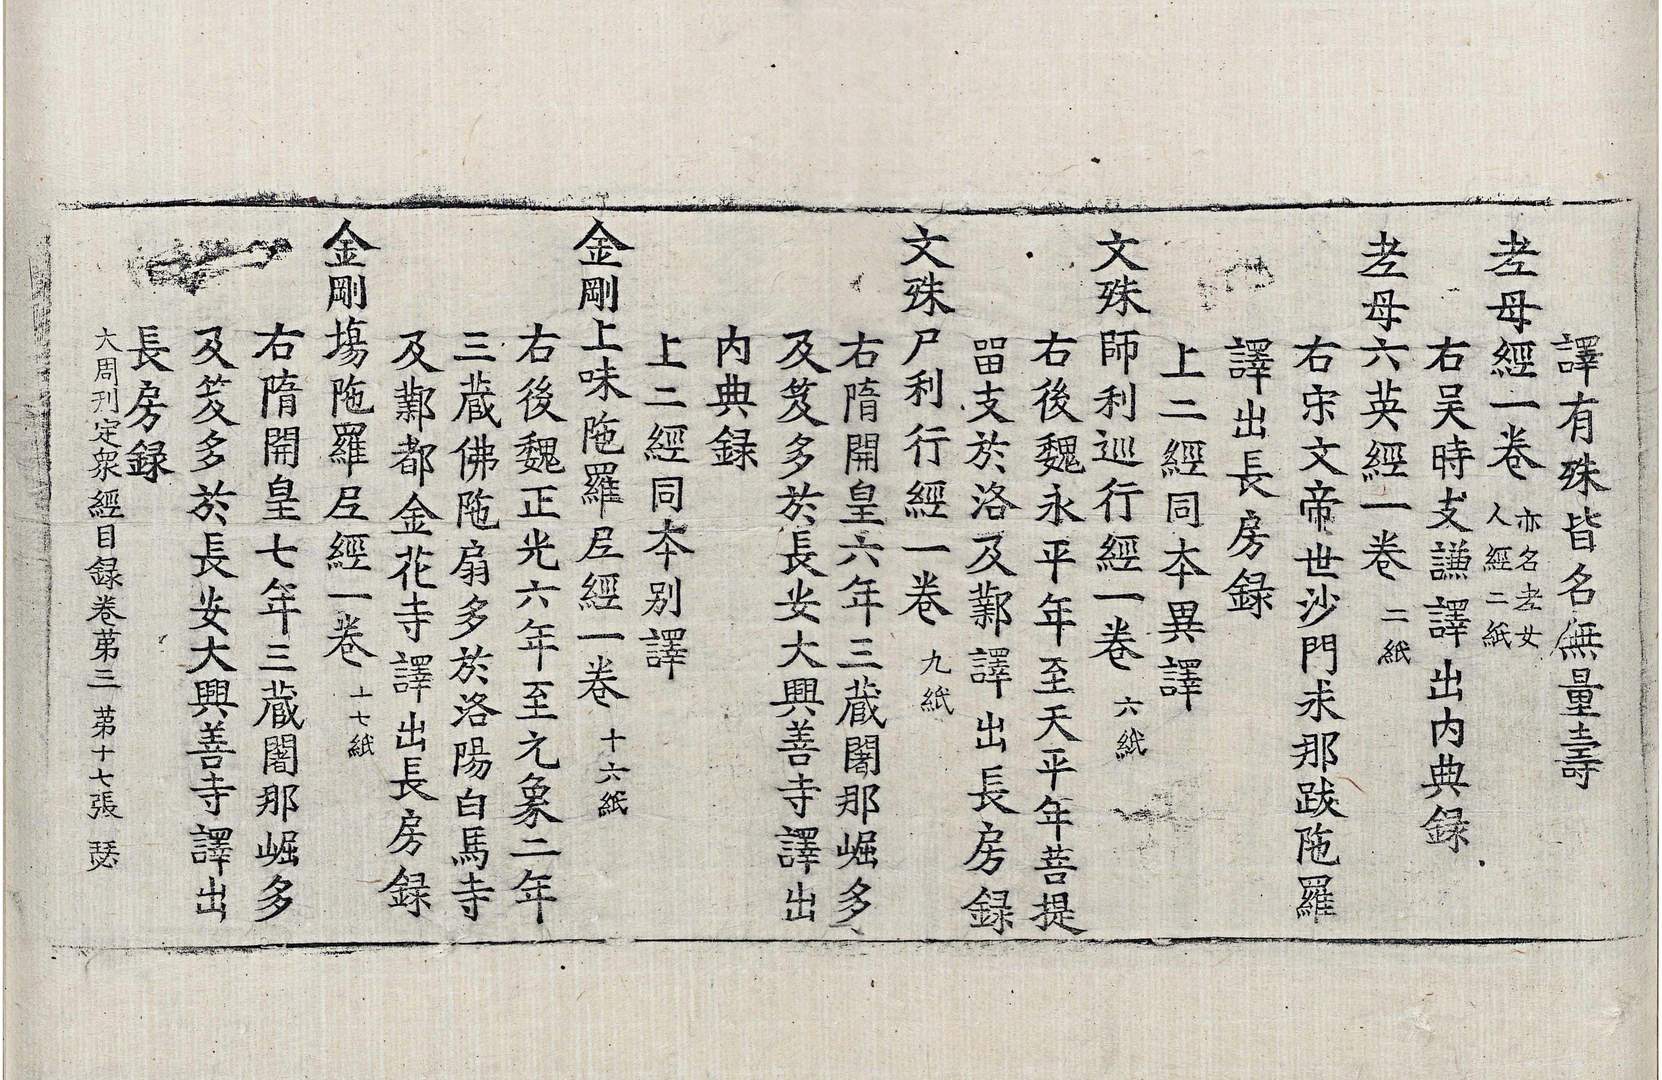 譯有殊皆名無量壽
老母經一卷 亦名老女人經二紙
右吴時支謙譯出内典録
老母六英經一卷 二紙
右宋文帝世沙門求那跋陁羅
譯出長房録
上二經同本異譯
文殊師利巡行經一卷 六紙
右後魏永平年至天平年菩提
留支於洛及鄴譯出長房録
文殊尸利行經一卷 九紙
右隋開皇六年三蔵闍那崛多
及笈多於長安大興善寺譯出
内典録
上二經同本別譯
金剛上味陁羅尼經一卷 十六紙
右後魏正光六年至元象二年
三蔵佛陁扇多於洛陽白馬寺
及鄴都金花寺譯出長房録
金剛場陁羅尼經一卷 十七紙
右隋開皇七年三蔵闍那崛多
及笈多於長安大興善寺譯出
長房録
大周刊定衆經目録卷第三 第十七張 瑟